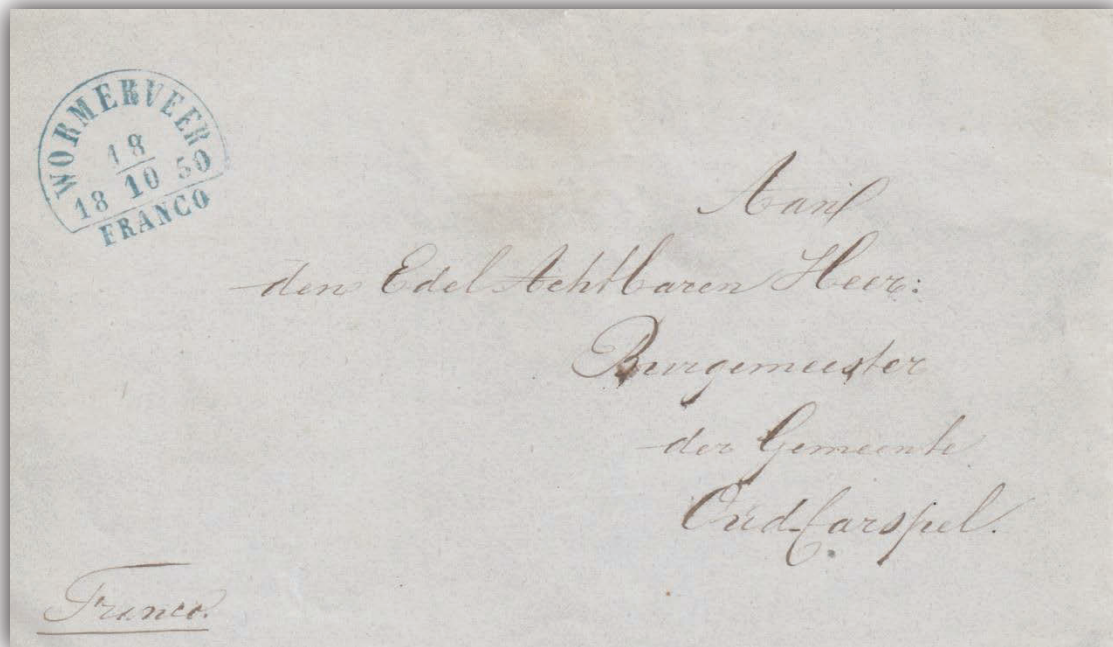 WORMERVEER
18
18 10 50
FRANCO
Aan
den Edel Achtbaren Heer:
Burgemeester
der Gemeente
Oud-Carspel.
Franco.